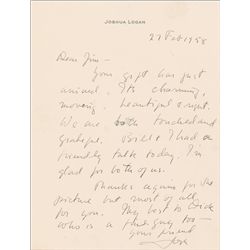 JOSHUA LOGAN
27 Feb 1958
Dear Jim -
Your gift has just
arrived. Its charming,
moving, beautiful & right.
We are both touched and
grateful. Bill & I had a
friendly talk today. I'm
glad for both of us.
Thanks again for the
picture but most of all
for you. My best to Dick
who is a fine guy too -
your friend
Josh